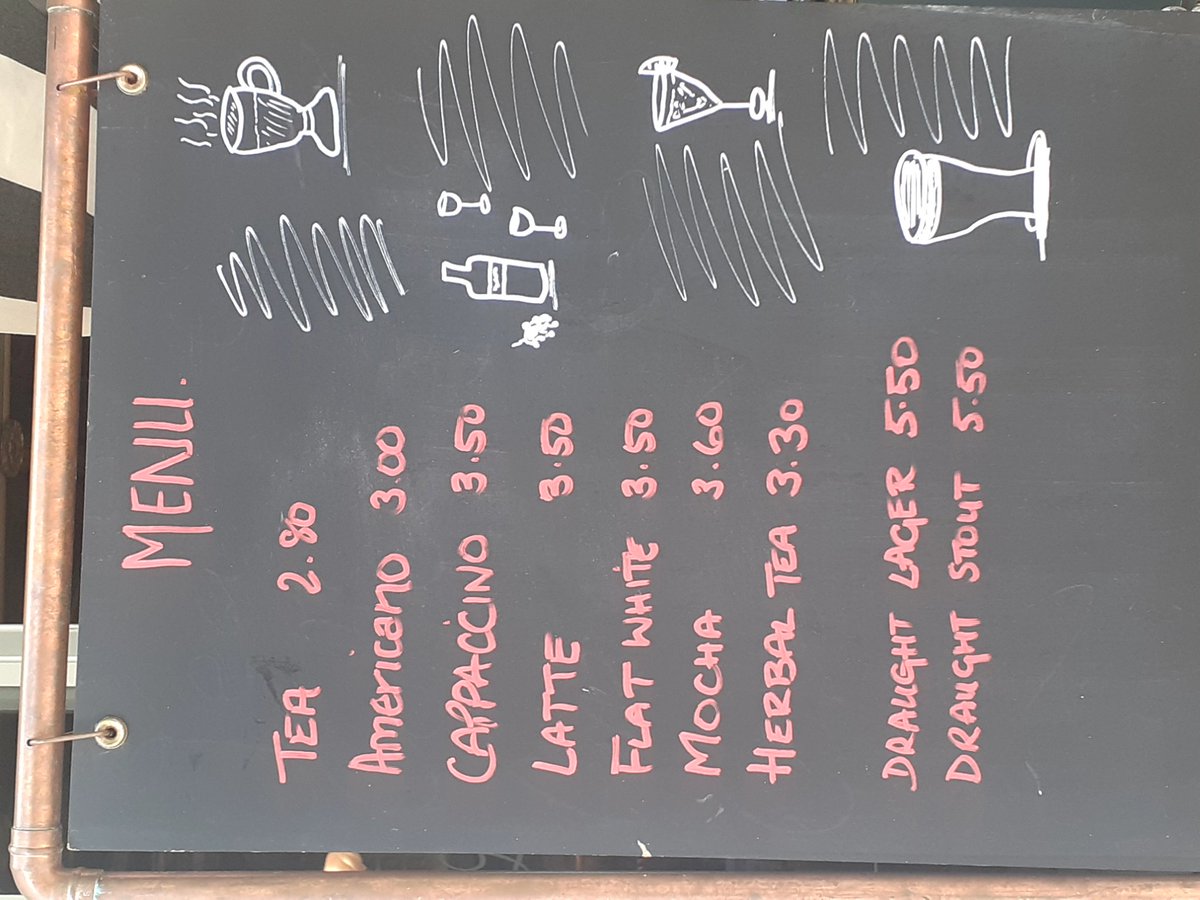 MENU.
TEA 2.80
Americano 3.00
CAPPACCINO 3.50
LATTE 3.50
FLAT WHITE 3.50
MOCHA 3.60
HERBAL TEA 3.30
DRAUGHT LAGER 5.50
DRAUGHT STOUT 5.50